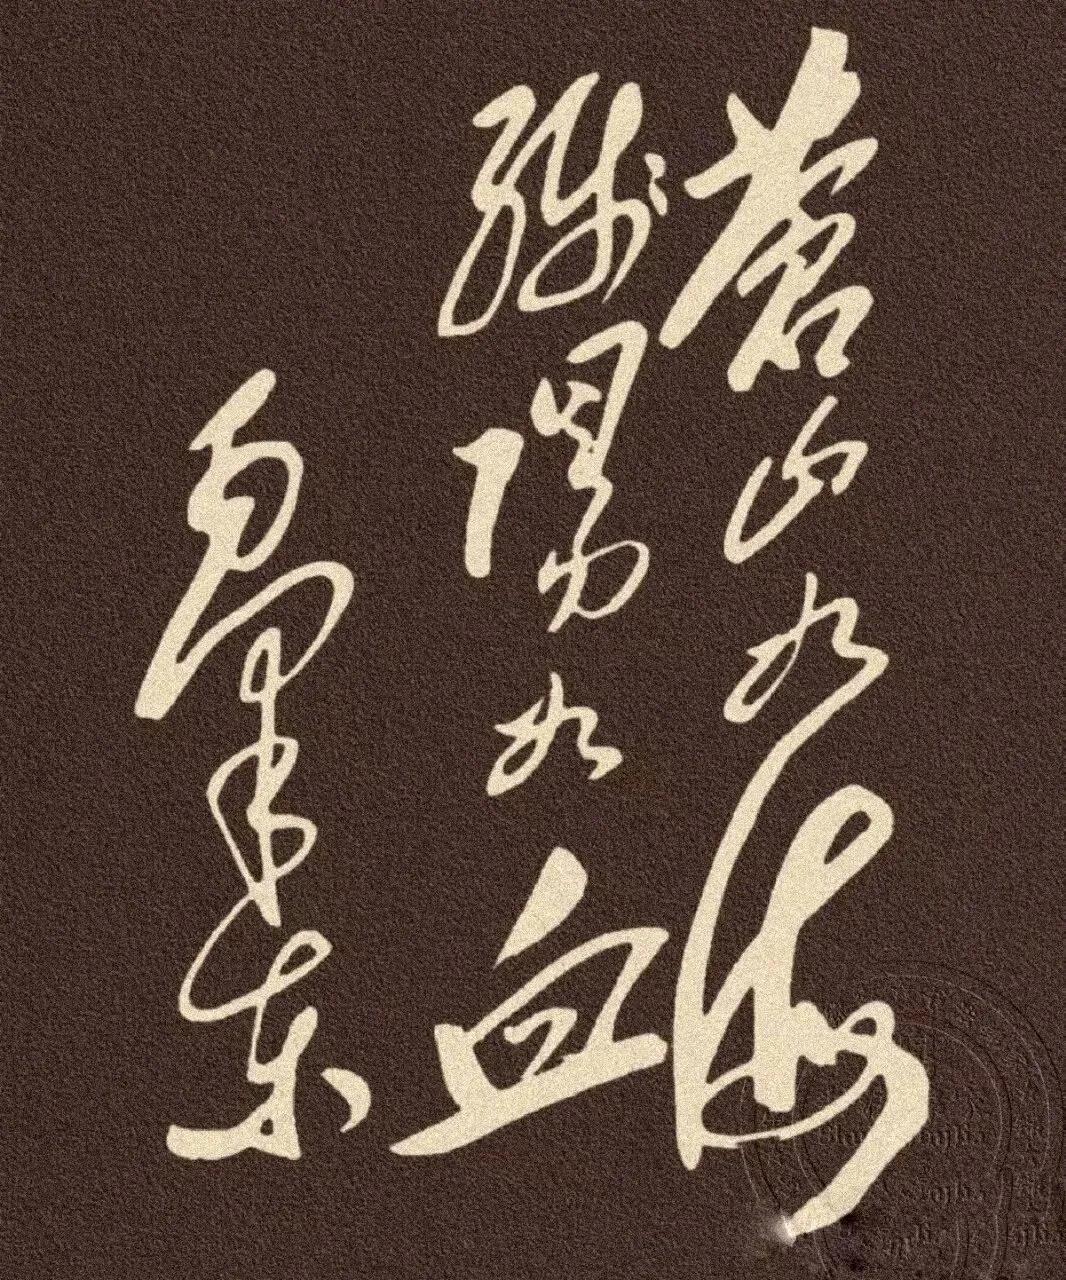 苍山如海
残阳如血
毛泽东